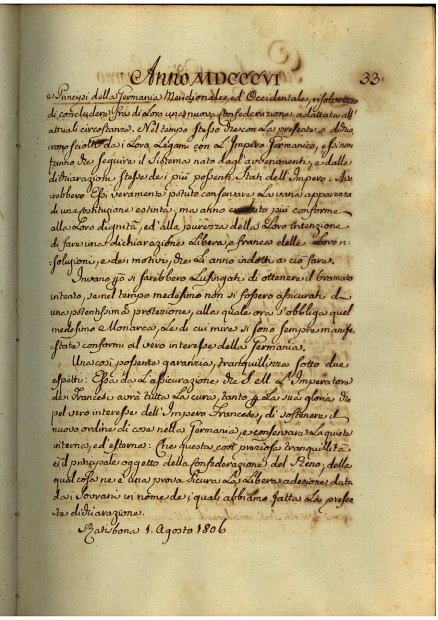 Anno MDCCCVI 33
e Principi della Germania Meridionale, ed Occidentale, risolvettero
di concludere fra di Loro una nuova Confederazione adattata all'
attuali circostanze. Nel tempo stesso che con La presente si dichia
rono sciolti da i Loro Legami con L'Impero Germanico, essi non
fanno che seguire il sistema nato dagl'avvenimenti, e dalle
dichiarazioni stesse de i più possenti Stati dell'impero. Av
rebbero Essi veramente potuto conservare La vana apparenza
di una costituzione estinta, ma anno creduto più conforme
alla Loro dignità, ed alla purezza della Loro intenzione
di fare una dichiarazione Libera, e franca delle Loro ri
soluzioni, e dei motivi, che Li anno indotti a ciò fare.
Invano però si sarebbero Lusingati di ottenere il bramato
intento, se nel tempo medesimo non si fossero assicurati da
una potentissima protezione, alla quale ora s'obbliga quel
medesimo Monarca, Le di cui mire si sono sempre manife
state conformi al vero interesse della Germania.
Una così possente garanzia, tranquillizza sotto due
aspetti: Essa da L'assicurazione che S. M. L'Imperatore
de Francesi avrà tutta La cura, tanto per La sua gloria che
pel vero interesse dell'Impero Francese, di sostenere il
nuovo ordine di cose nella Germania, e conservare La quiete
interna, ed esterna: Che questa così preziosa tranquillità
è il principale oggetto della Confederazione del Reno, della
qual cosa ne è una prova sicura La Libera adesione data
da i Sovrani in nome de i quali abbiamo fatta La presen
te dichiarazione.
Ratisbona 1. Agosto 1806